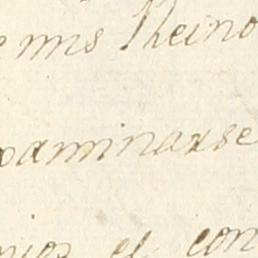 e mis Reino
xaminarse
nios el con